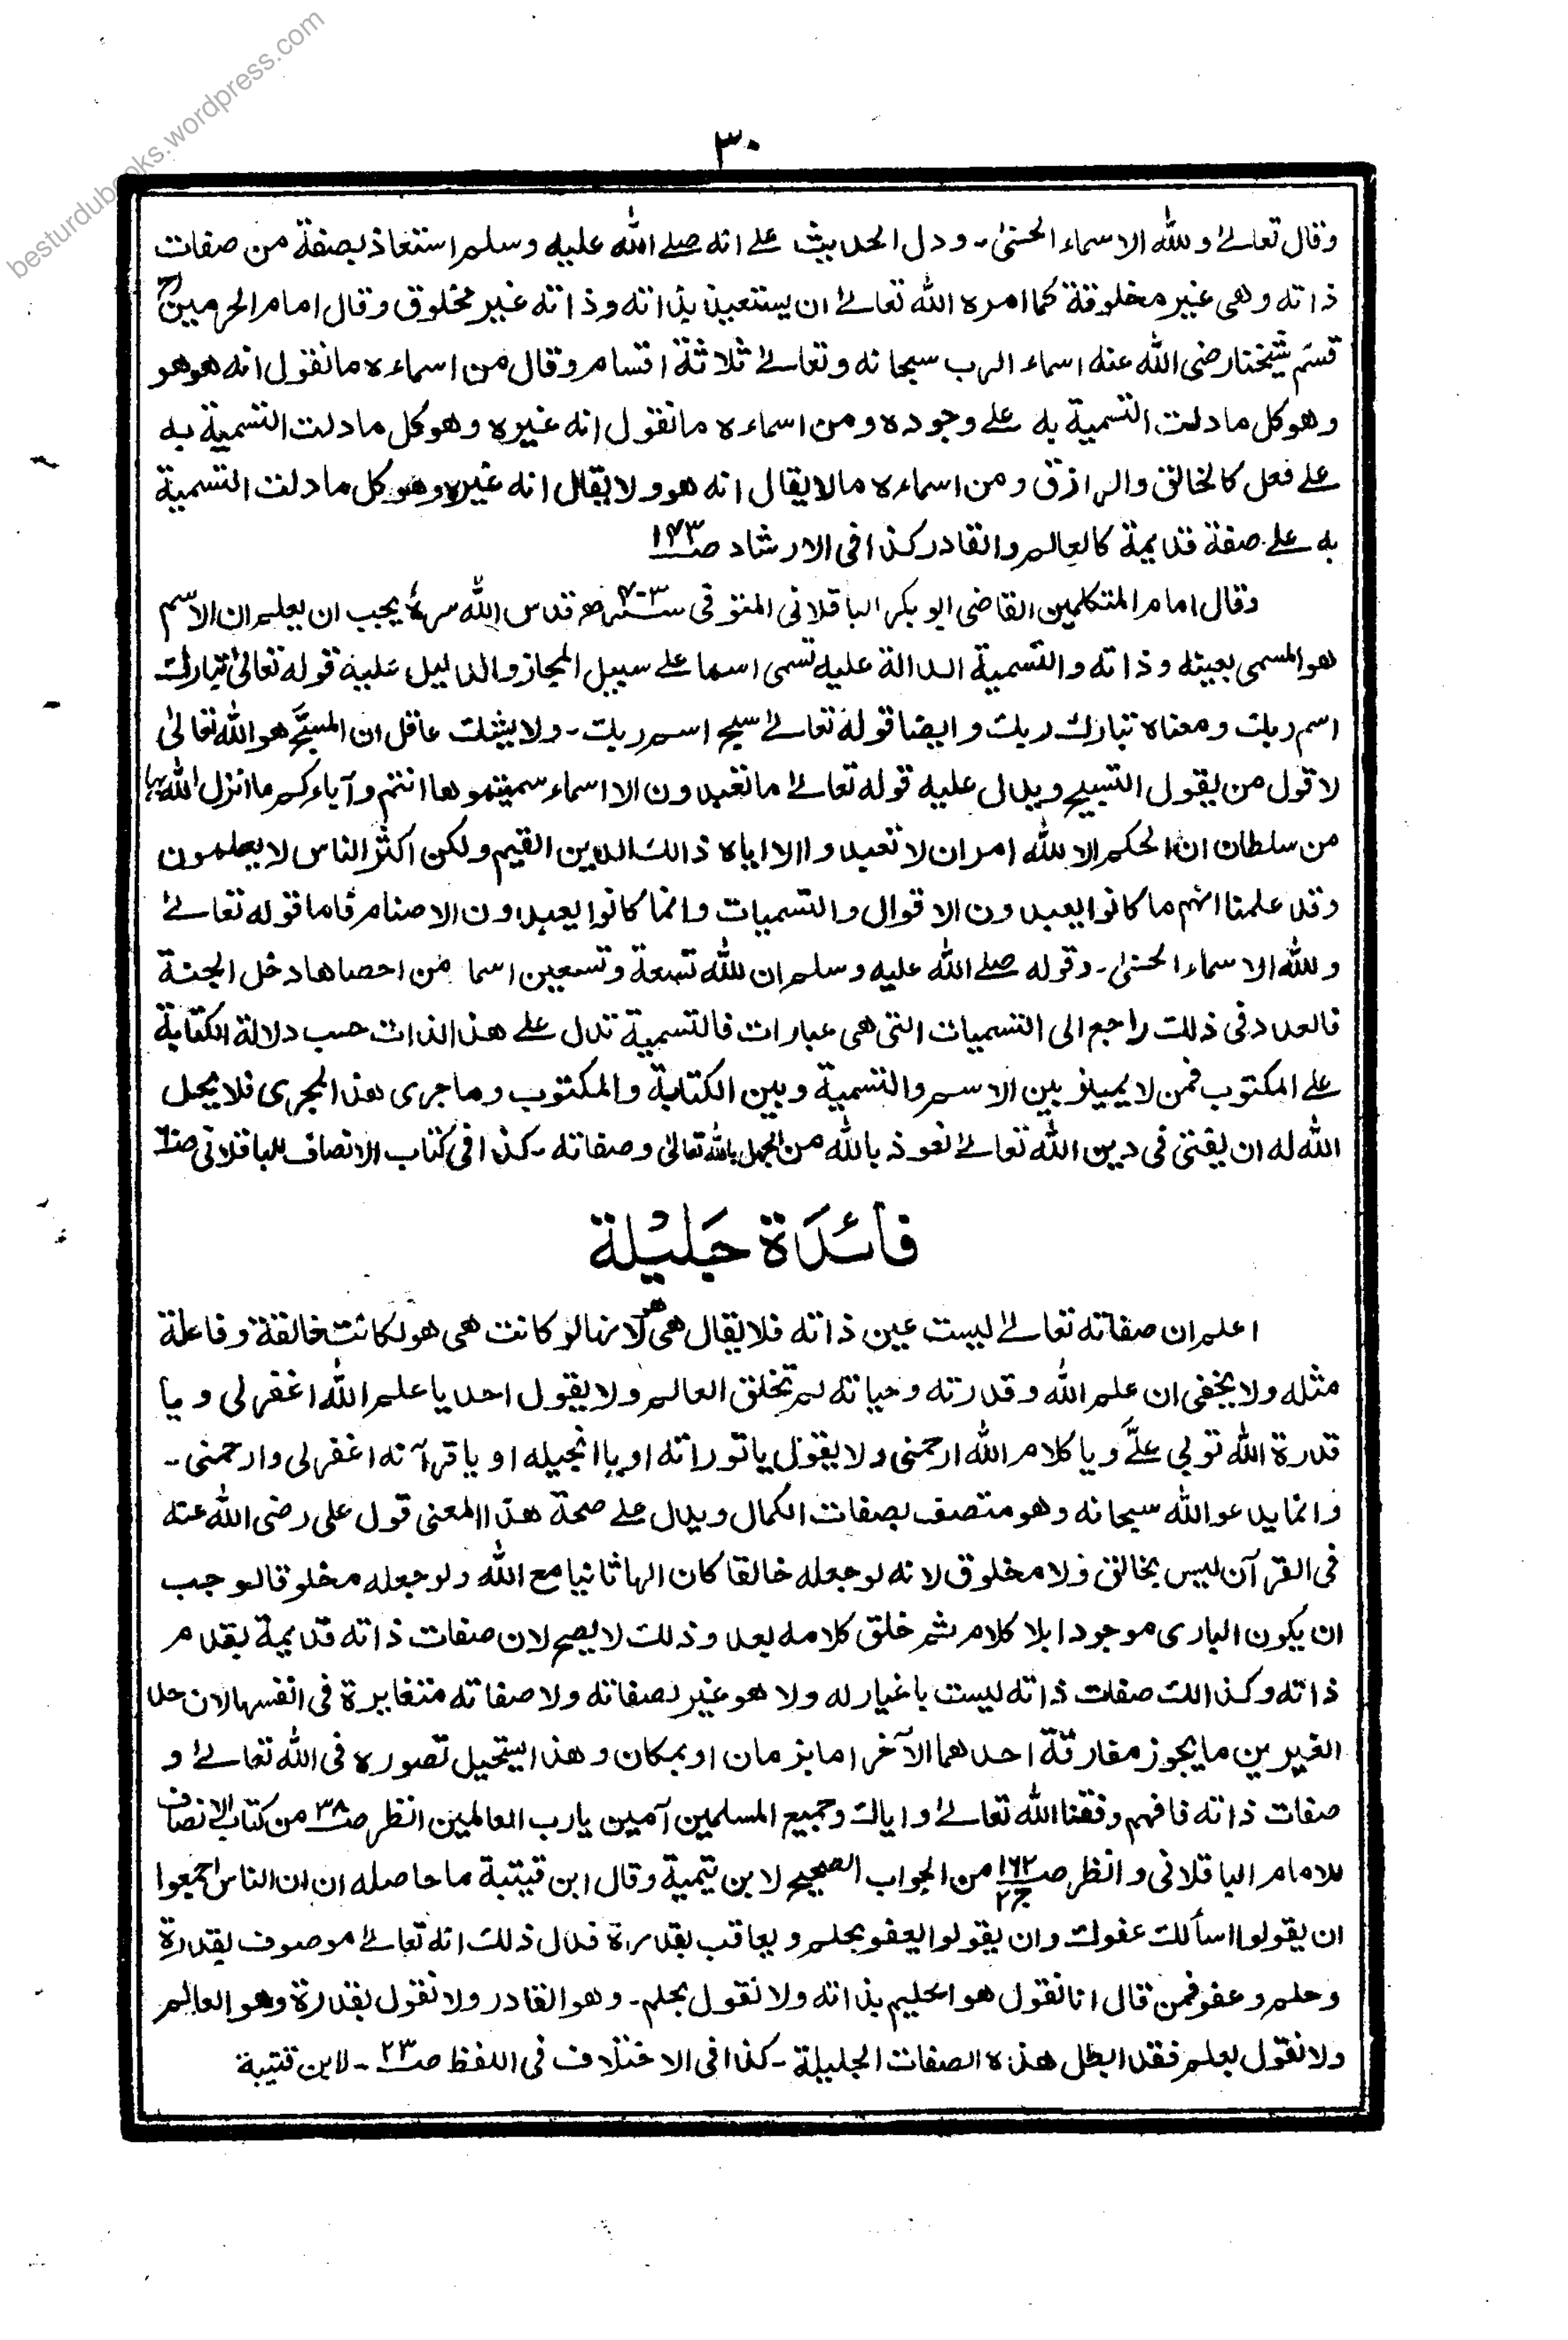 besturdubooks.wordpress.com
٣٠
وقال تعالےٰ وللّٰه الاسماء الحسنیٰ۔ ودل الحدیث علے انه صلے اللّٰه علیه وسلم استعاذ بصفة من صفات
ذاته وهی غیر مخلوقة کما امره اللّٰه تعالےٰ ان یستعیذ بذاته وذاته غیر مخلوق وقال امام الحرمینؒ
قسّم شیخنا رضی اللّٰه عنه اسماء الرب سبحانه وتعالےٰ ثلاثة اقسام وقال من اسماءه ما نقول انه هو هو
وهو کل ما دلت التسمیة به علے وجوده ومن اسماءه ما نقول انه غیره وهو کل ما دلت التسمیة به
علے فعل کالخالق والرازق ومن اسماءه ما لا یقال انه هو ولا یقال انه غیره وهو کل ما دلت التسمیة
به علے صفة قدیمة کالعالم والقادر کذا فی الارشاد صـ١٤٣
وقال امام المتکلمین القاضی ابو بکر الباقلانی المتوفی سنـ٤٠٣ـة ھ قدس اللّٰه سرهٗ یجب ان یعلم ان الاسم
هو المسمی بعینه وذاته والتسمیة الدالة علیه تسمی اسما علے سبیل المجاز والدلیل علیه قوله تعالیٰ تبارک
اسم ربک ومعناه تبارک ربک وایضا قوله تعالےٰ سبح اسم ربک۔ ولا یشک عاقل ان المسبَّح هو اللّٰه تعالیٰ
لا قول من یقول التسبیح ویدل علیه قوله تعالےٰ ما تعبدون الا اسماء سمیتموها انتم وآباءکم ما انزل اللّٰه بها
من سلطان ان الحکم الا للّٰه امر ان لا تعبدوا الا ایاه ذالک الدین القیم ولکن اکثر الناس لا یعلمون
وقد علمنا انهم ما کانوا یعبدون الاقوال والتسمیات وانما کانوا یعبدون الاصنام فاما قوله تعالےٰ
وللّٰه الاسماء الحسنیٰ۔ وقوله صلے اللّٰه علیه وسلم ان للّٰه تسعة وتسعین اسما من احصاها دخل الجنة
فالعدد فی ذلک راجع الی التسمیات التی هی عبارات فالتسمیة تدل علے هذا الذات حسب دلالة الکتابة
علے المکتوب فمن لا یمیز بین الاسم والتسمیة وبین الکتابة والمکتوب وما جری هذا المجری فلا یحل
اللّٰه له ان یفتی فی دین اللّٰه تعالےٰ نعوذ باللّٰه من الجهل باللّٰه تعالیٰ وصفاته۔ کذا فی کتاب الانصاف للباقلانی
فَائِدَة جَلِیْلَة
اعلم ان صفاته تعالےٰ لیست عین ذاته فلا یقال هی هو لانها لو کانت هی هو لکانت خالقة وفاعلة
مثله ولا یخفی ان علم اللّٰه وقدرته وحیاته لم تخلق العالم ولا یقول احد یا علم اللّٰه اغفر لی ویا
قدرة اللّٰه توبی علیَّ ویا کلام اللّٰه ارحمنی ولا یقول یا توراته او یا انجیله او یا قرآنه اغفر لی وارحمنی۔
وانما یدعو اللّٰه سبحانه وهو متصف بصفات الکمال ویدل علے صحة هذا المعنی قول علی رضی اللّٰه عنه
فی القرآن لیس بخالق ولا مخلوق لانه لو جعله خالقا کان الها ثانیا مع اللّٰه ولو جعله مخلوقا لوجب
ان یکون الباری موجودا بلا کلام ثم خلق کلامه بعد وذلک لا یصح لان صفات ذاته قدیمة بقدم
ذاته وکذالک صفات ذاته لیست باغیار له ولا هو غیر لصفاته ولا صفاته متغایرة فی انفسها لان حد
الغیرین ما یجوز مفارقة احدهما الآخر اما بزمان او بمکان وهذا یستحیل تصوره فی اللّٰه تعالےٰ و
صفات ذاته فافهم وفقنا اللّٰه تعالےٰ وایاک وجمیع المسلمین آمین یا رب العالمین انظر صـ٣٨ من کتاب الانصاف
للامام الباقلانی وانظر صـ١٦٢ ج٢ من الجواب الصحیح لابن تیمیة وقال ابن قتیبة ما حاصله ان ان الناس اجمعوا
ان یقولوا اسألک عفوک وان یقولوا یعفو بحلم ویعاقب بقدرة فدل ذلک انه تعالےٰ موصوف بقدرة
وحلم وعفو فمن قال انا نقول هو الحلیم بذاته ولا نقول بحلم۔ وهو القادر ولا نقول بقدرة وهو العالم
ولا نقول بعلم فقد ابطل هذه الصفات الجلیلة۔ کذا فی الاختلاف فی اللفظ صـ٢٣۔ لابن قتیبة